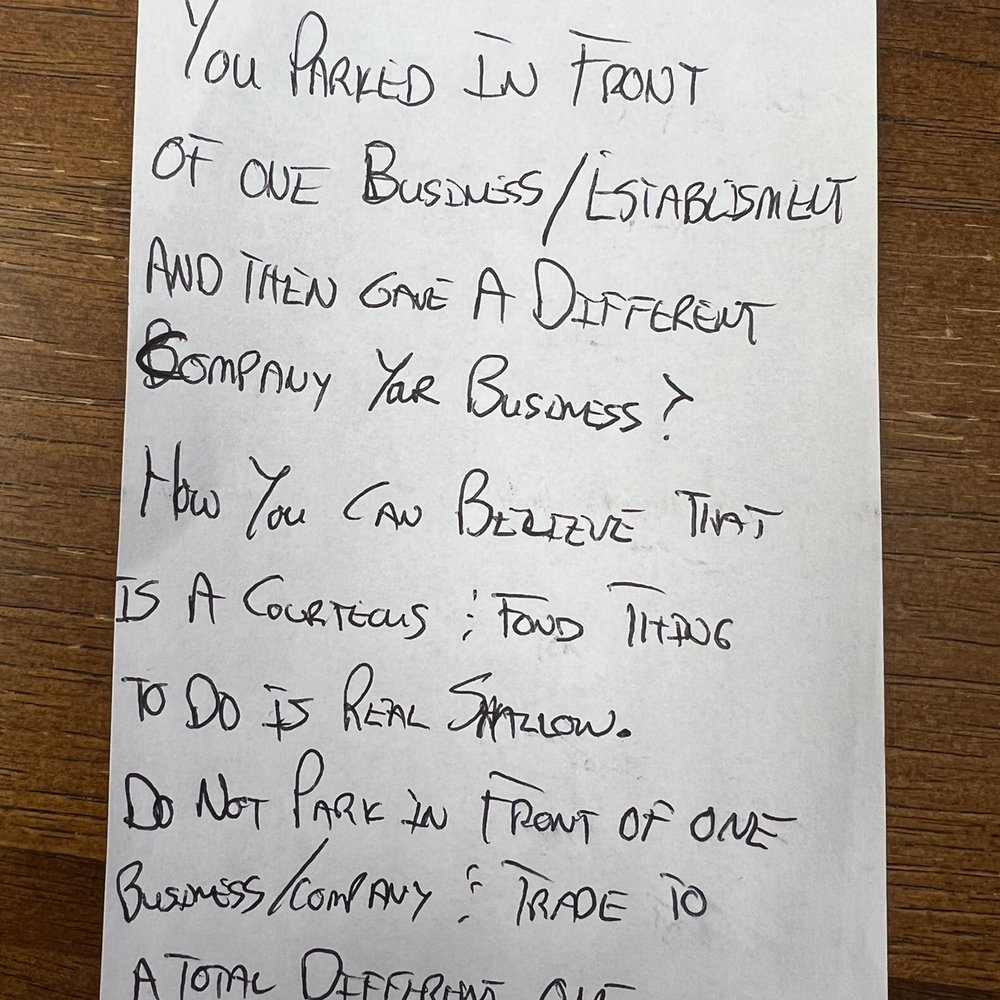 You PARKED IN FRONT
OF ONE BUSINESS/ESTABLISMENT
AND THEN GAVE A DIFFERENT
COMPANY YOUR BUSINESS?
HOW YOU CAN BELIEVE THAT
IS A COURTEOUS & FOND THING
TO DO IS REAL SHALLOW.
DO NOT PARK IN FRONT OF ONE
BUSINESS/COMPANY & TRADE TO
A TOTAL DIFFERENT ONE